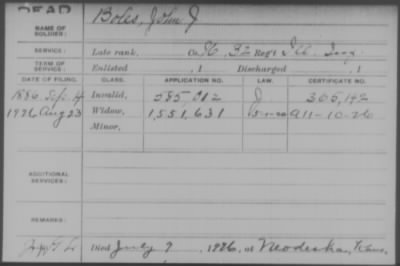 DEAD
NAME OF SOLDIER: Boles, John J
SERVICE: Late rank, Co. H, 32 Reg't Ill. Inf.
TERM OF SERVICE: Enlisted , 1 Discharged , 1
DATE OF FILING. CLASS. APPLICATION NO. LAW. CERTIFICATE NO.
1886 Sep. 4 Invalid, 585.012 J. 365,142
1926 Aug 23 Widow, 1,551,631 A11-10-26
Minor,
ADDITIONAL SERVICES:
REMARKS:
Died July 9 1926, at Neodesha, Kans.